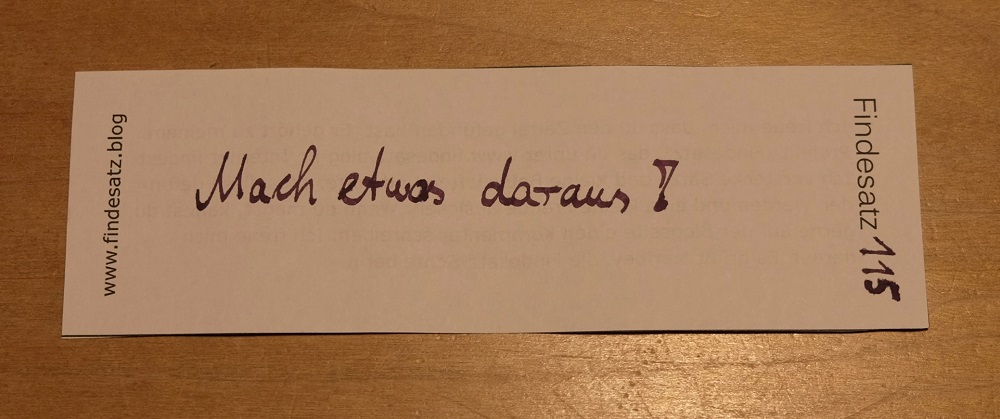 www.findesatz.blog
Mach etwas daraus!
Findesatz 115